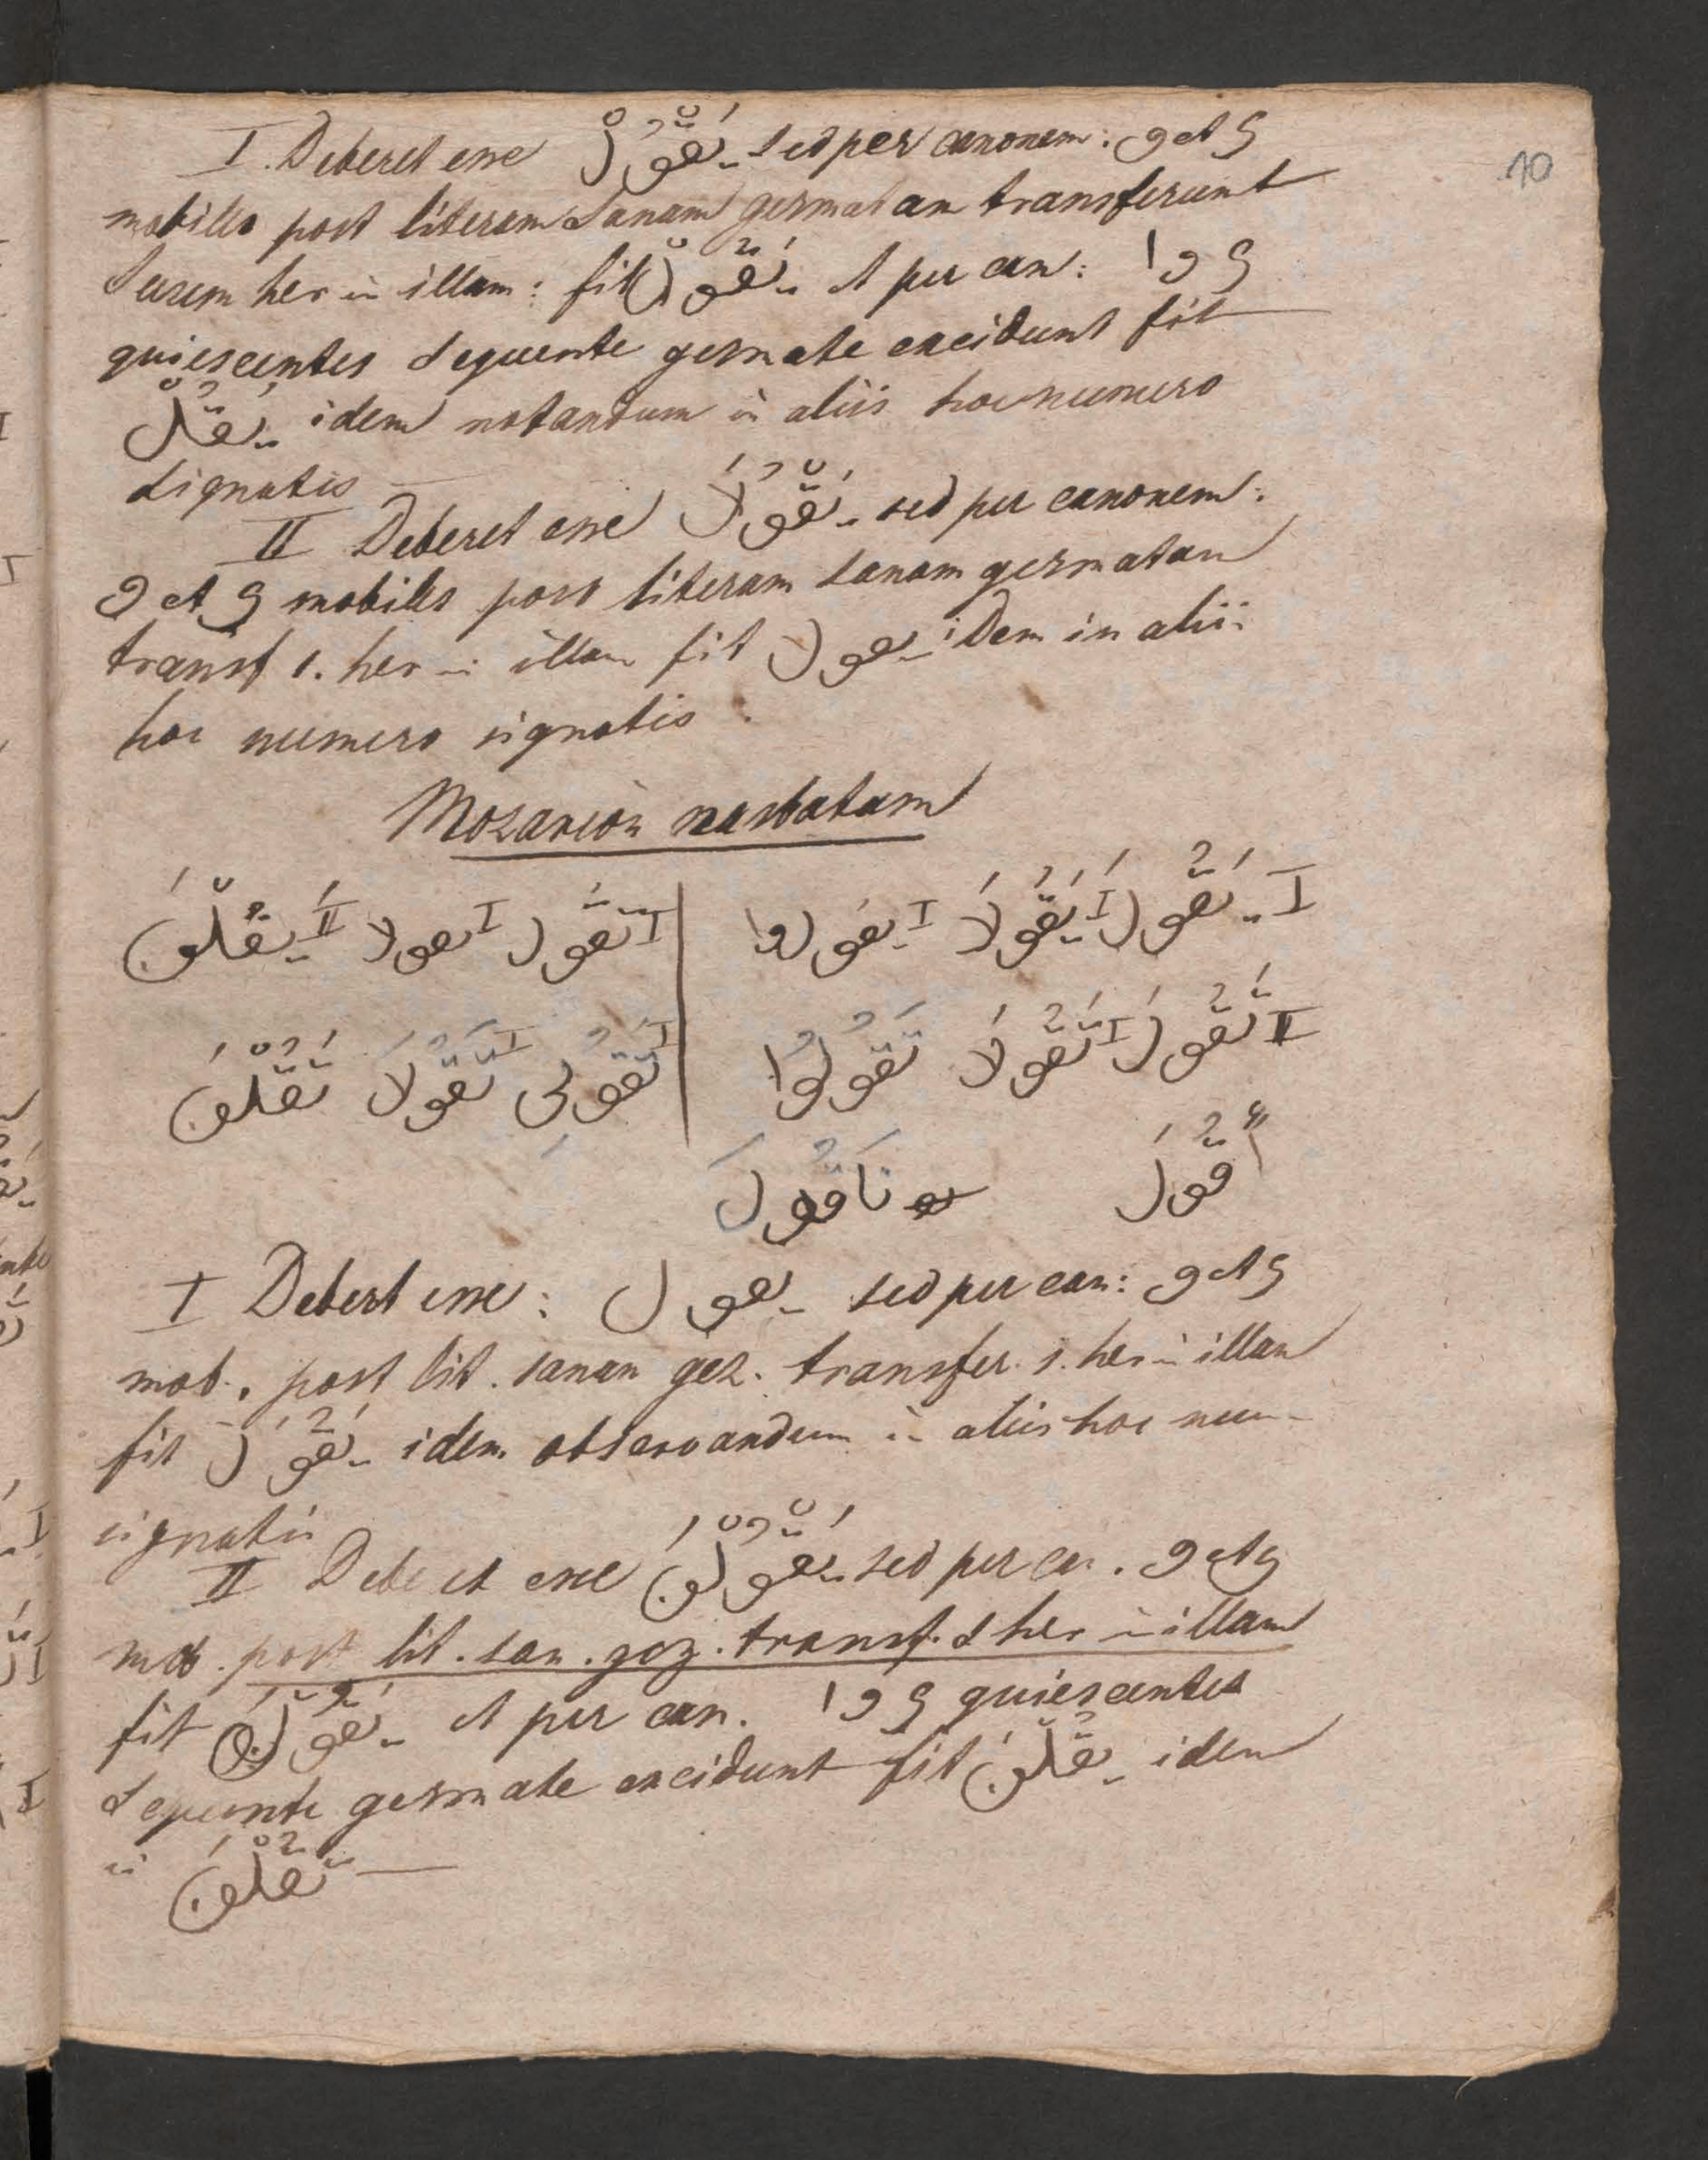 10
I. Deberet esse يَقْوُلْ sed per canonem: و et ي
mobiles post literam sanam gesmatam transferunt
suum her in illam: fit يَقُوْلْ et per can: ا و ي
quiescentes sequente gesmate excidunt fit
يَقُلْ idem notandum in aliis hoc numero
signatis
II Deberet esse يَقْوُلَا sed per canonem:
و et ي mobiles post literam sanam gesmatam
transf s. her in illam fit يقولا idem in aliis
hoc numero signatis
Mozareon nasbatum
I يَقُولَ I يَقُولَا I يقولوا | I تَقُول I تقولا II يَقُلْنَ
II تَقُولَ I تَقُولَا تَقُولُوا | I تَقُولِى I تَقُولَا تَقُلْنَ
أَقُولَ نَقُولَ
I Deberet esse: يقول sed per can: و et ي
mob. post lit. sanam gez. transfer. s. her in illam
fit يَقُولَ idem observandum in aliis hoc num
signatis
II Deberet esse يَقْوُلْنَ sed per can. و et ي
mob. post lit. san. gez. transf. s her in illam
fit يَقُوْلْنَ et per can. ا و ي quiescentes
sequente gesmate excidunt fit يَقُلْنَ idem
in تَقُلْنَ